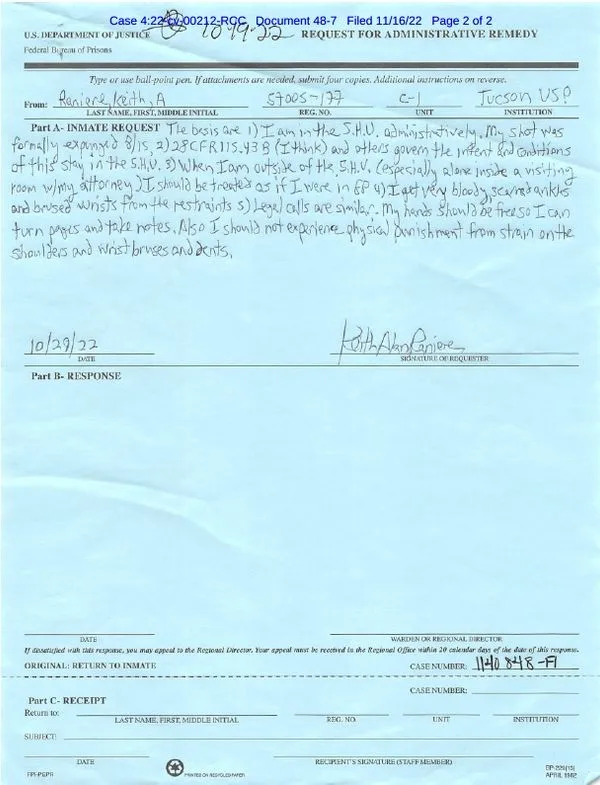 Case 4:22-cv-00212-RCC Document 48-7 Filed 11/16/22 Page 2 of 2
U.S. DEPARTMENT OF JUSTICE 10-19-22 REQUEST FOR ADMINISTRATIVE REMEDY
Federal Bureau of Prisons
Type or use ball-point pen. If attachments are needed, submit four copies. Additional instructions on reverse.
From: Raniere, Keith, A 57005-177 C-1 Tucson USP
LAST NAME, FIRST, MIDDLE INITIAL REG. NO. UNIT INSTITUTION
Part A- INMATE REQUEST The basis are 1) I am in the S.H.U. administratively. My shot was
formally expunged 8/15, 2) 28CFR115.43 B (I think) and others govern the intent and conditions
of this stay in the S.H.U. 3) When I am outside of the S.H.U. (especially alone inside a visiting
room w/my attorney) I should be treated as if I were in GP 4) I get very bloody, scarred ankles
and brused wrists from the restraints 5) Legal calls are similar. My hands should be free so I can
turn pages and take notes. Also I should not experience physical punishment from strain on the
shoulders and wrist bruses and dents.
10/29/22 Keith Alan Raniere
DATE SIGNATURE OF REQUESTER
Part B- RESPONSE
DATE WARDEN OR REGIONAL DIRECTOR
If dissatisfied with this response, you may appeal to the Regional Director. Your appeal must be received in the Regional Office within 20 calendar days of the date of this response.
ORIGINAL: RETURN TO INMATE CASE NUMBER: 1140848-F1
CASE NUMBER:
Part C- RECEIPT
Return to:
LAST NAME, FIRST, MIDDLE INITIAL REG. NO. UNIT INSTITUTION
SUBJECT:
DATE RECIPIENT'S SIGNATURE (STAFF MEMBER)
PRINTED ON RECYCLED PAPER BP-229(13)
APRIL 1982